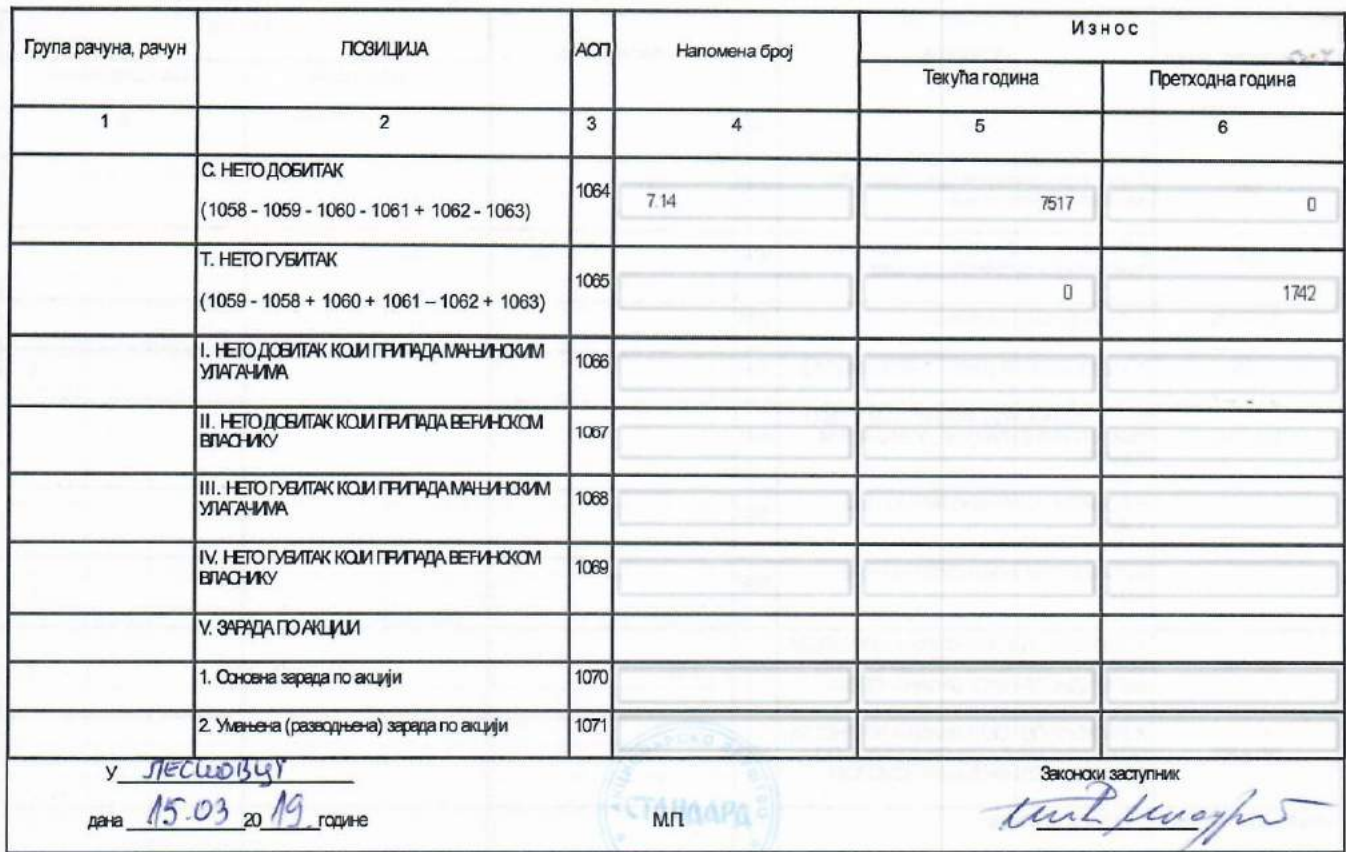 Група рачуна, рачун
ПОЗИЦИЈА
АОП
Напомена број
Износ
Текућа година
Претходна година
1
2
3
4
5
6
С. НЕТО ДОБИТАК
(1058 - 1059 - 1060 - 1061 + 1062 - 1063)
1064
7.14
7517
0
Т. НЕТО ГУБИТАК
(1059 - 1058 + 1060 + 1061 – 1062 + 1063)
1065
0
1742
I. НЕТО ДОБИТАК КОЈИ ПРИПАДА МАЊИНСКИМ
УЛАГАЧИМА
1066
II. НЕТО ДОБИТАК КОЈИ ПРИПАДА ВЕЋИНСКОМ
ВЛАСНИКУ
1067
III. НЕТО ГУБИТАК КОЈИ ПРИПАДА МАЊИНСКИМ
УЛАГАЧИМА
1068
IV. НЕТО ГУБИТАК КОЈИ ПРИПАДА ВЕЋИНСКОМ
ВЛАСНИКУ
1069
V. ЗАРАДА ПО АКЦИЈИ
1. Основна зарада по акцији
1070
2. Умањена (разводњена) зарада по акцији
1071
У ЛЕСКОВЦУ
дана 15.03 20 19 године
СТАНДАРД
М.П.
Законски заступник